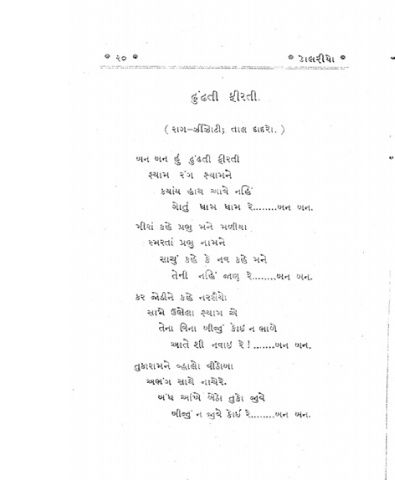 ૨૦ ટાલરીયા
ઢુંઢતી ફીરતી.
(રાગ-ઝીંઝોટી; તાલ દાદરો.)
બન બન હું ઢુંઢતી ફીરતી
શ્યામ રંગ શ્યામને
ક્યાંય હાથ આવે નહિં
ગોતું ધામ ધામ રે........બન બન.
મીરાં કહે પ્રભુ મને મળીયા
સ્મરતાં પ્રભુ નામને
સાચું કહે કે નવ કહે મને
તેની નહિં જાણ રે........બન બન.
કર જોડીને કહે નરસૈંયો
સામે ઉભેલા શ્યામ એ
તેના વિના બીજું કોઈ ન ભાળે
આતે શી નવાઇ રે!.......બન બન.
તુકારામને વ્હાલો વીઠોબા
અભંગ સાથે નાચેરે.
બંધ આંખે બેઠો તુકા જુવે
બીજું ન જુવે કોઈ રે........બન બન.